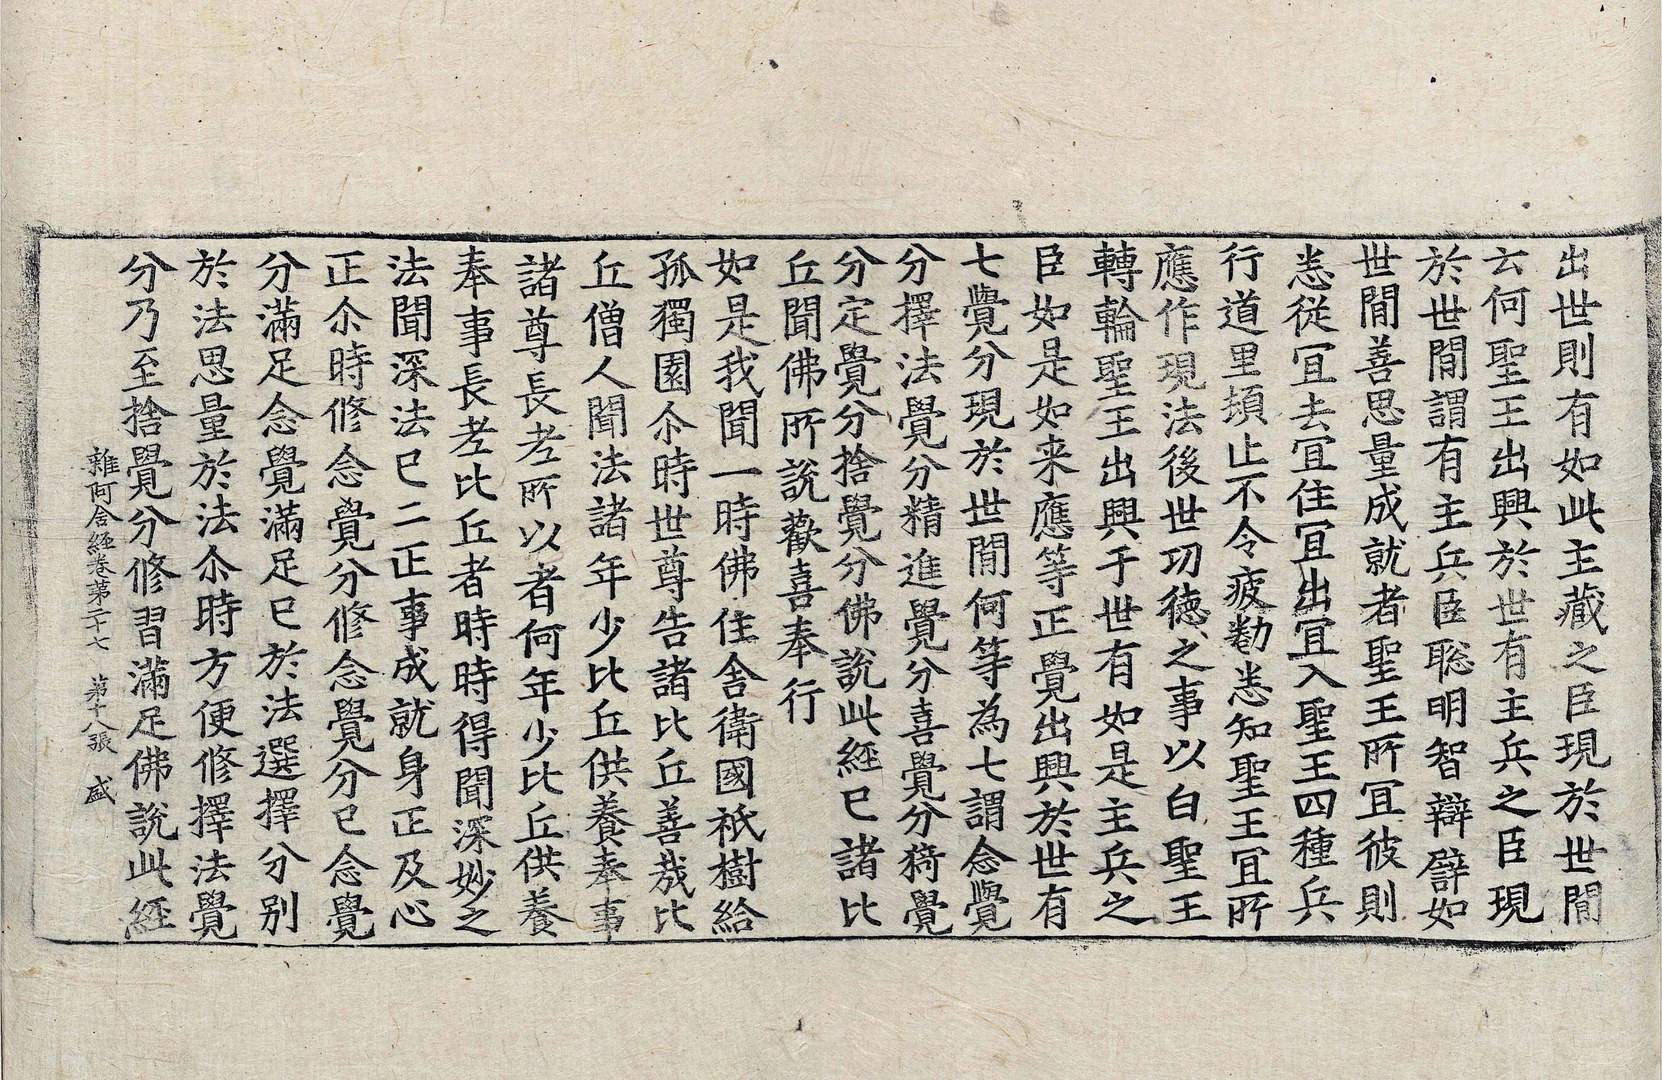 出世則有如此主藏之臣現於世閒
云何聖王出興於世有主兵之臣現
於世閒謂有主兵臣聡明智辯辟如
世閒善思量成就者聖王所冝彼則
悉從冝去冝住冝出冝入聖王四種兵
行道里頓止不令疲勌悉知聖王冝所
應作現法後世功徳之事以白聖王
轉輪聖王出興于世有如是主兵之
臣如是如来應等正覺出興於世有
七覺分現於世閒何等為七謂念覺
分擇法覺分精進覺分喜覺分猗覺
分定覺分捨覺分佛說此經已諸比
丘聞佛所說歡喜奉行
如是我聞一時佛住舎衛國祇樹給
孤獨園尒時世尊告諸比丘善哉比
丘僧人聞法諸年少比丘供養奉事
諸尊長老所以者何年少比丘供養
奉事長老比丘者時時得聞深妙之
法聞深法已二正事成就身正及心
正尒時修念覺分修念覺分已念覺
分滿足念覺滿足已於法選擇分別
於法思量於法尒時方便修擇法覺
分乃至捨覺分修習滿足佛說此經
雜阿含經卷第二十七 第十八張 盛